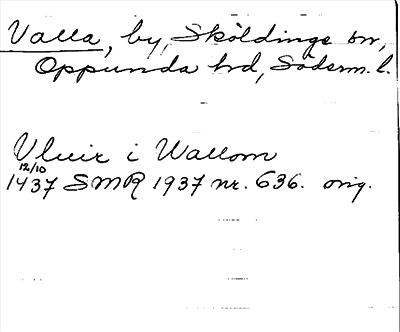 Valla, by, Sköldinge sn,
Oppunda hd, Söderm. l.
i Wallom
12/10
1437 SMR 1937 nr. 636. orig.